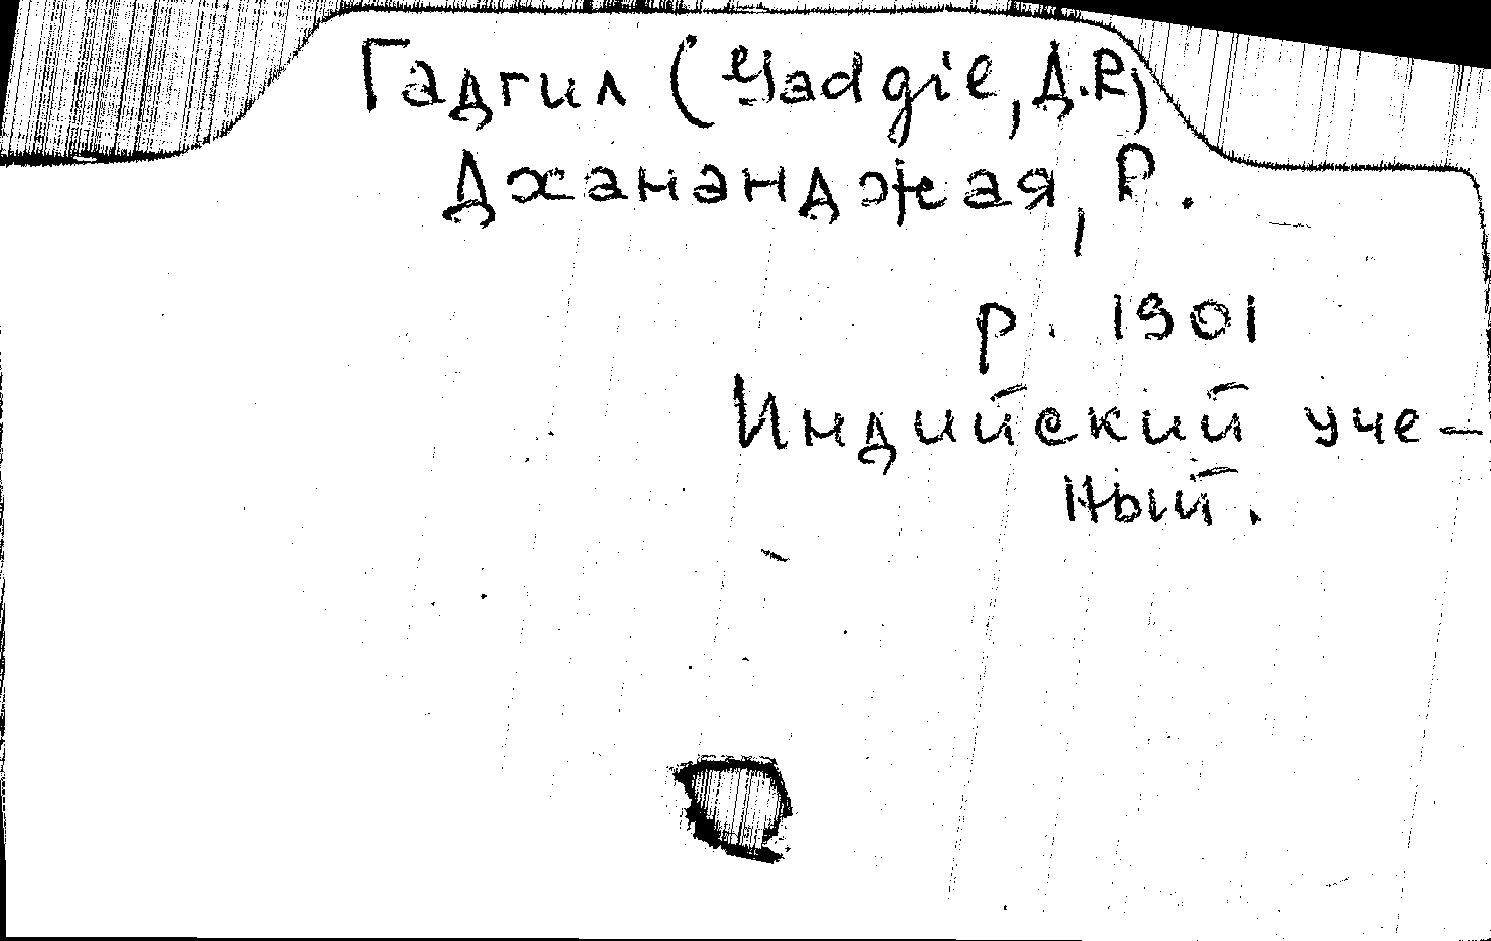 Гадгил (Gadgil, Д.Р)
Джананджая, Р.
р. 1901
Индийский уче-
ный.